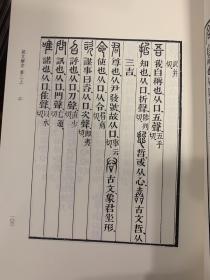 武并切
吾 我自稱也从口五聲 五乎切
哲 知也从口折聲 陟列切 悊 哲或从心 嚞 古文哲从
三吉
君 尊也从尹發號故从口 舉云切 古文象君坐形
命 使也从口从令 眉病切
咨 謀事曰咨从口次聲 即夷切
召 評也从口刀聲 直少切
問 訊也从口門聲 亡運切
唯 諾也从口隹聲 以水切
說文解字 第二上 口